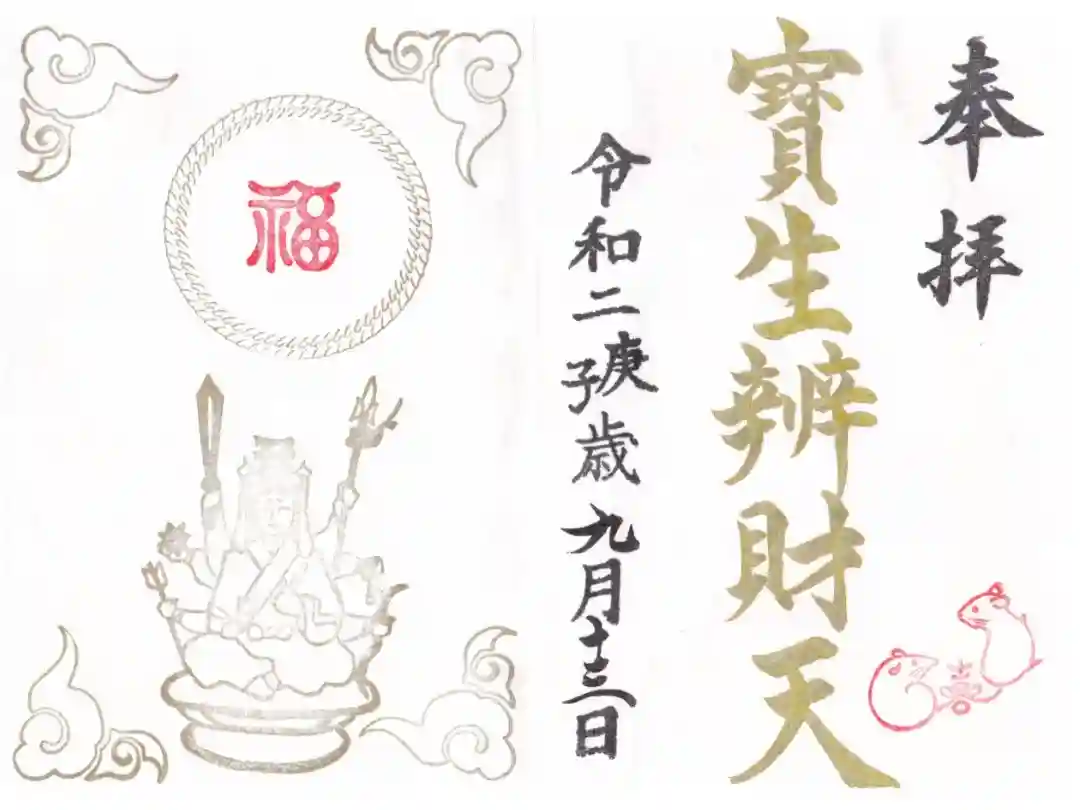 奉拝
寶生辨財天
令和二庚子歳九月十三日
福